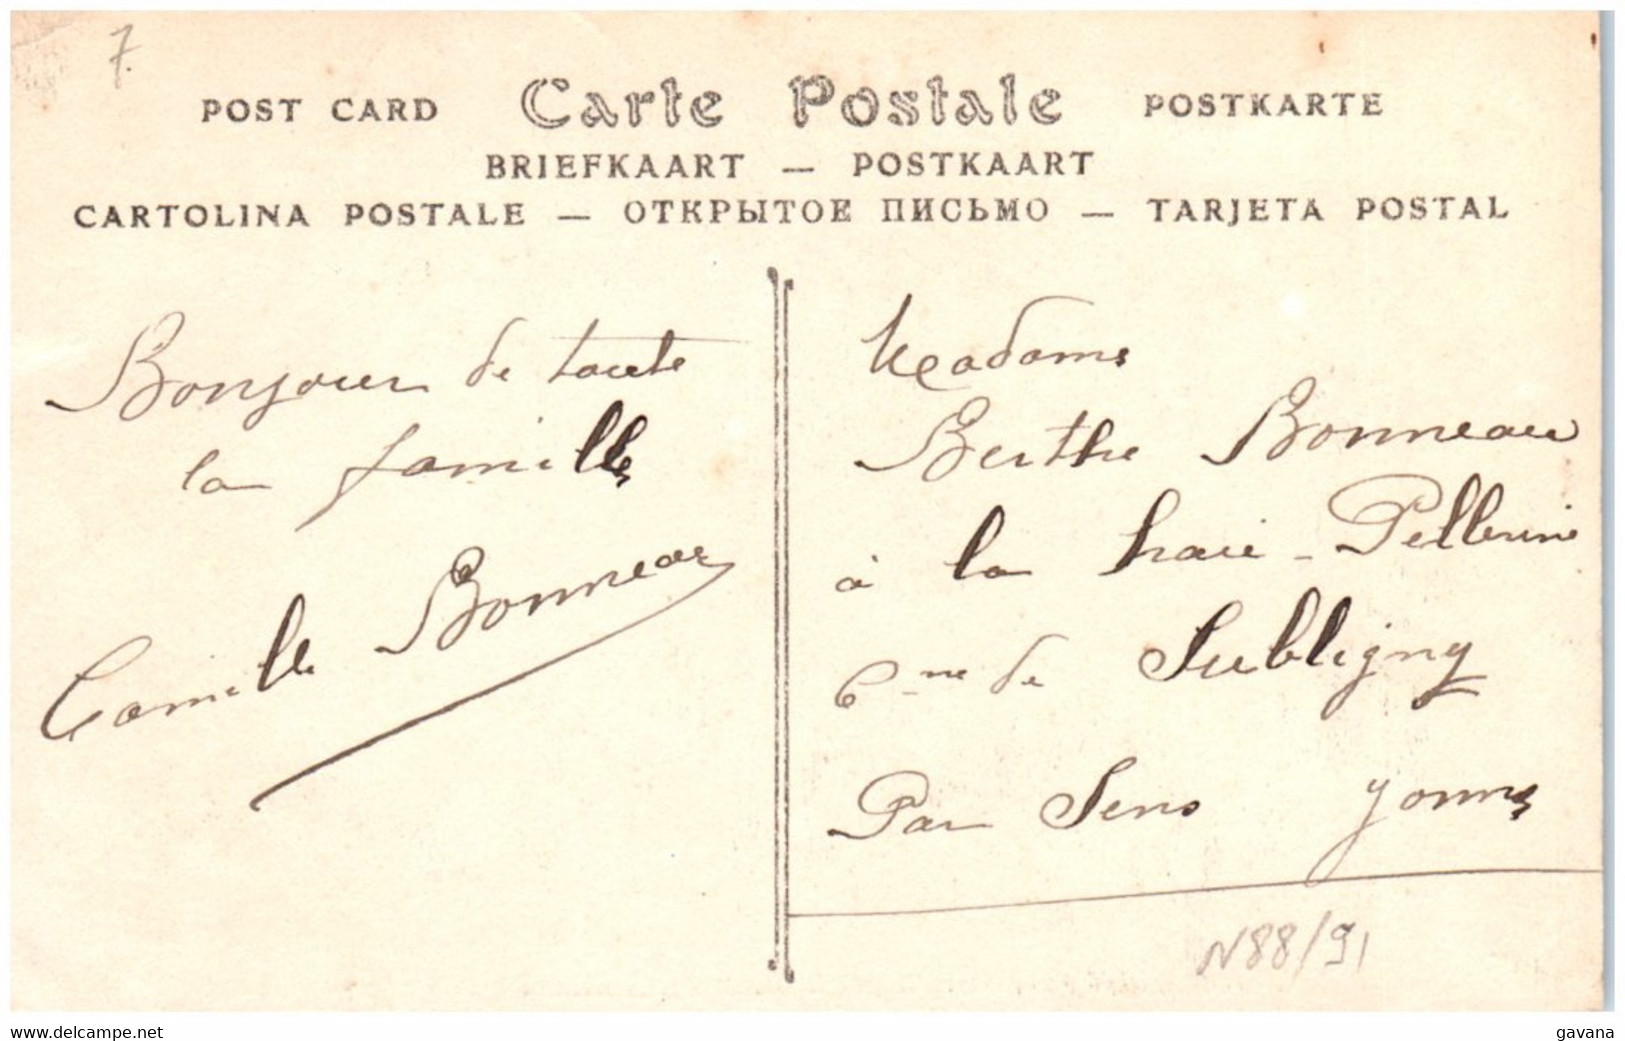 7.
POST CARD Carte Postale POSTKARTE
BRIEFKAART — POSTKAART
CARTOLINA POSTALE — ОТКРЫТОЕ ПИСЬМО — TARJETA POSTAL
Bonjour de toute
la famille
Camille Bonneau
Madame
Berthe Bonneau
à la haie - Pellerine
Cne de Subligny
Par Sens Yonne
N88/91
www.delcampe.net
gavana